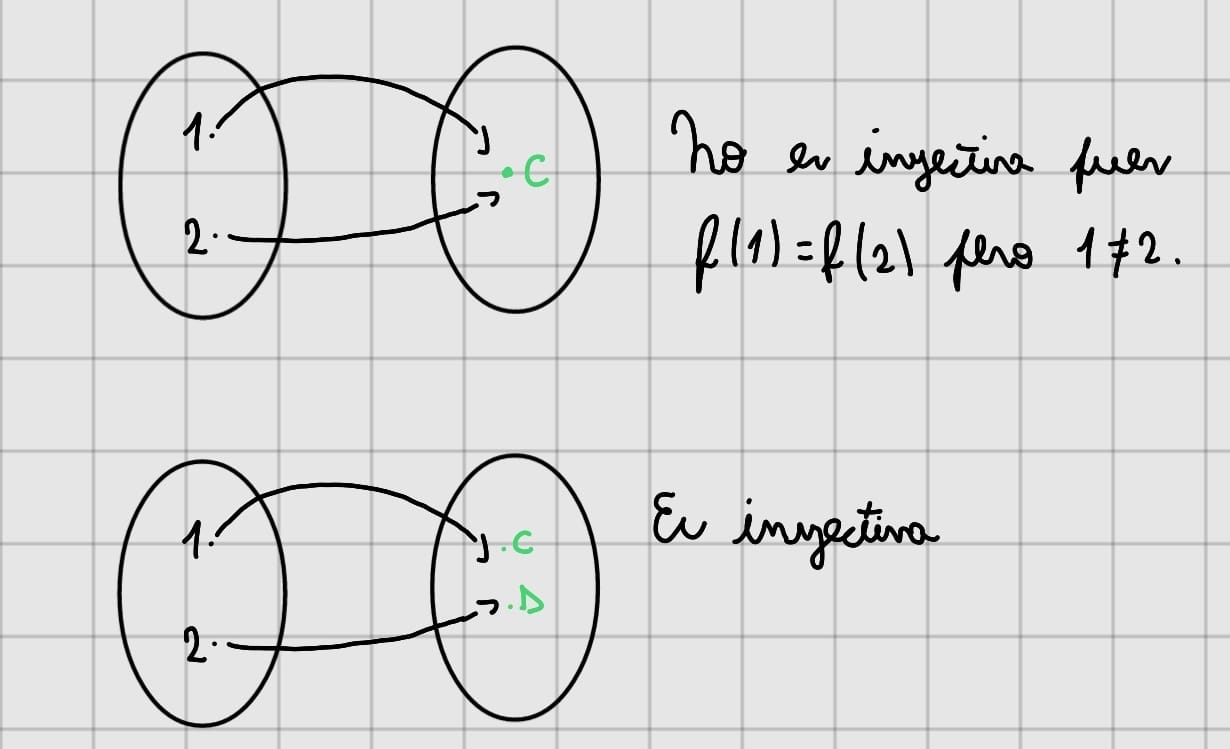 1.
2.
C
No es inyectiva pues
f(1)=f(2) pero 1≠2.
1.
2.
C
D
Es inyectiva